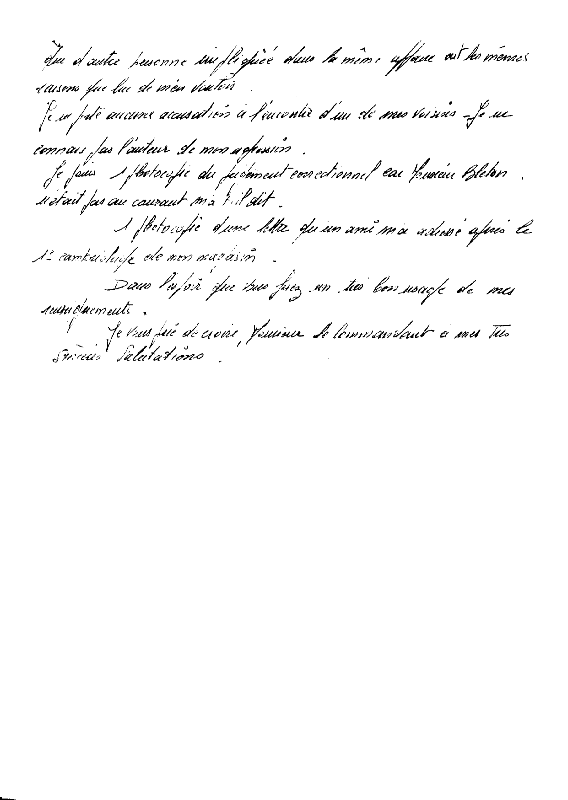 d'autre personne impliquée dans la même affaire ont les mêmes
raisons que lui de m'en vouloir.
Je ne porte aucune accusation à l'encontre d'un de mes voisins - Je ne
connais pas l'auteur de mon agression.
Je joins 1 photocopie du jugement correctionnel car Monsieur
n'était pas au courant m'a t'il dit.
1 photocopie d'une lettre qu'un ami m'a adressé après le
1er cambriolage de mon magasin.
Dans l'espoir que vous ferez un très bon usage de mes
renseignements.
Je vous prie de croire, Monsieur le Commandant à mes très
sincères salutations.